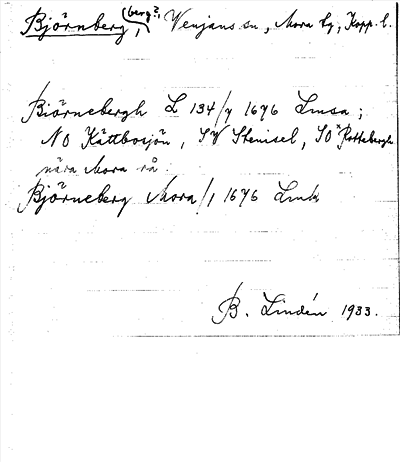 Björnberg, (berg?, Venjans sn, Mora tg, Kopp. l.
Biörnebergh L 134/7 1696 Lmsa;
NO Kättbosjön, SV Stenisel, SO
nära Mora rå.
Björneberg Mora/1 1696 Lmk
B. Lindén 1933.